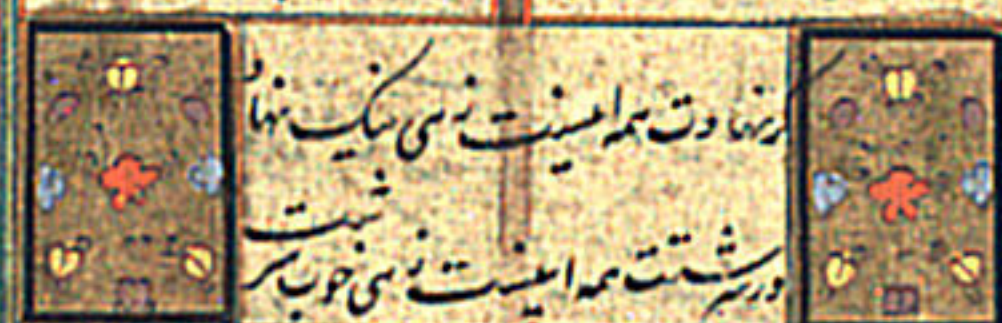 گر نهادت همه اینست زهی نیک نهاد
ور سرشتت همه اینست زهی خوب سرشت